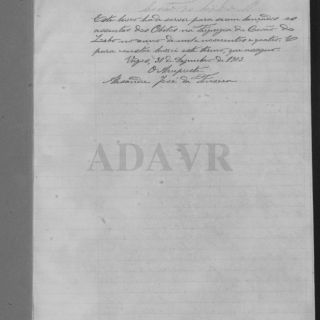 Este livro ha de servir para serem lançados os
assentos dos Obitos na freguezia de Covão do
Lobo no anno de mil novecentos e quatro. E
para constar lavrei este termo que assigno.
Vagos, 31 de Dezembro de 1903
O Arcipreste
José da
ADAVR